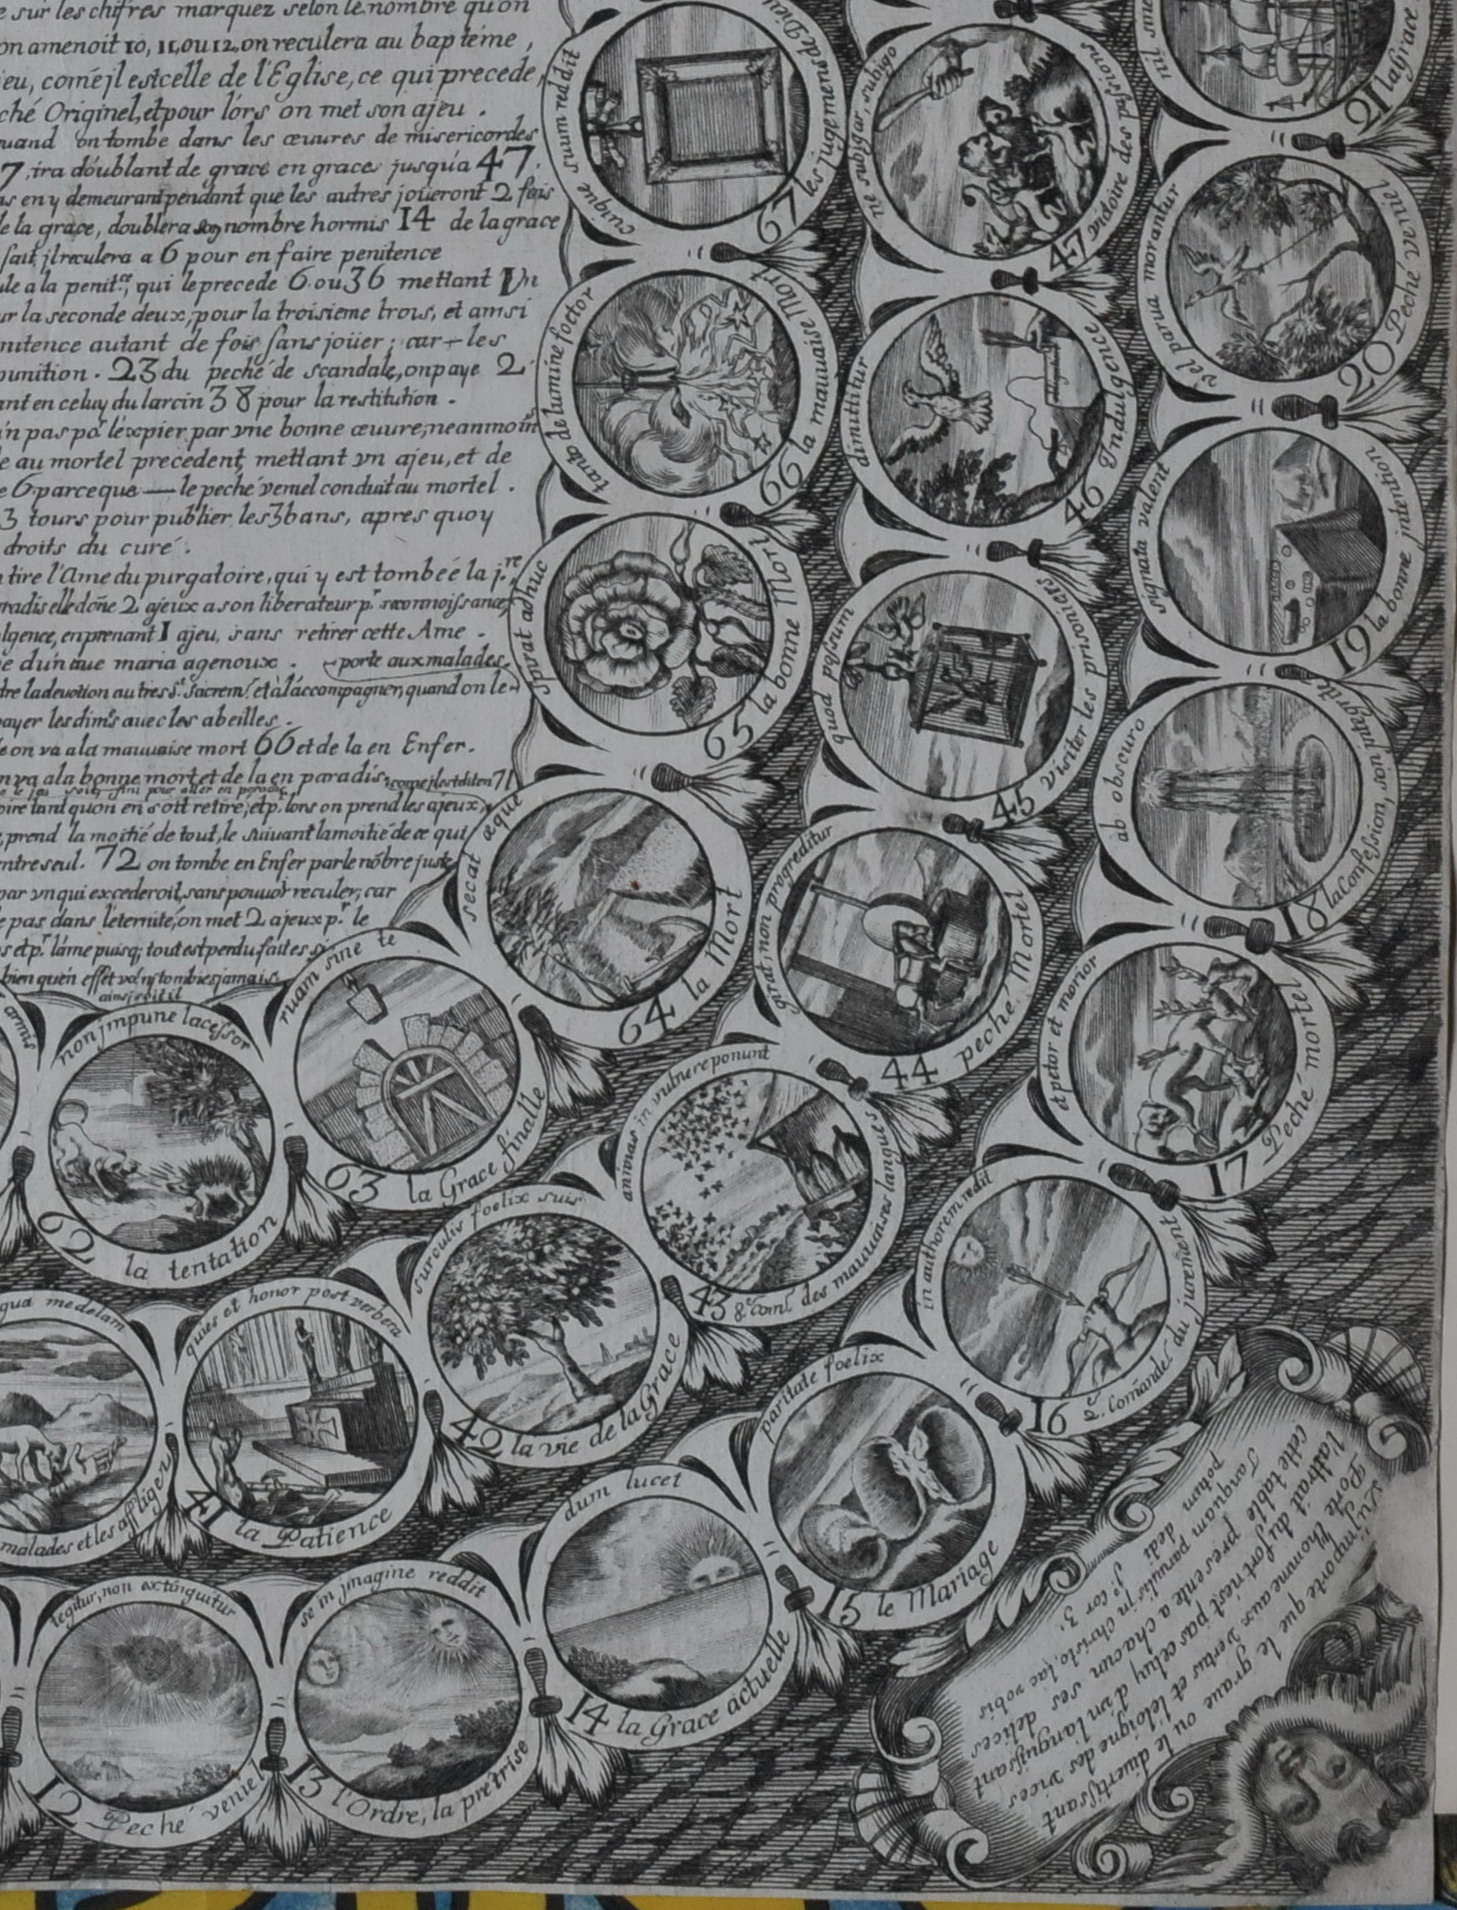 e sur les chifres marquez selon le nombre qu'on
on amenoit 10, 11, ou 12, on reculera au baptéme,
jeu, comē jl est celle de l'Eglise, ce qui precede,
ché Originel, et pour lors on met son ajeu.
uand on tombe dans les œuures de misericordes
7, ira doublant de grace en grace jusqu'a 47.
as en y demeurant pendant que les autres joüeront 2 fois
de la grace, doublera son nombre hormis 14 de la grace
fait jl reculera a 6 pour en faire penitence
ule a la penit.ce, qui le precede 6. ou 36 mettant Vn
ur la seconde deux, pour la troisieme trois, et ainsi
nitence autant de fois sans joüer; car + les
punition. 23 du peché de scandale, on paye 2
ant en celuy du larcin 38 pour la restitution.
in pas po.r l'éxpier par vne bonne œuure, neanmoin
e au mortel precedent, mettant vn ajeu, et de
e 6 parceque — le peché veniel conduit au mortel.
3 tours pour publier les 3 bans, apres quoy
droits du curé.
tire l'Ame du purgatoire, qui y est tombeé la p.re
radis elle dōne 2 ajeux a son liberateur p.r reconnoissance,
lgence, en prenant 1 ajeu, sans retirer cette Ame.
e d'un aue maria a genoux. porte aux malades.
dre la deuotion au tres S.t Sacrem.t et à l'accompagner, quand on le
payer les dim.s auec les abeilles.
le on va a la mauuaise mort 66 et de la en Enfer.
n va a la bonne mort et de la en paradis, come jl est dit en 71
oire tant qu'on en soit retiré, et p. lors on prend les ajeux,
, prend la moitié de tout, le suiuant la moitié de ce qui
entre seul. 72 on tombe en Enfer par le nōbre juste
par vn qui excederoit, sans pouuoir reculer, car
e pas dans leternité, on met 2 ajeux p.r le
s et p.r l'ame puisq; tout est perdu faites
bien qu'en effét vo.s n'y tombies jamais
ainsi soit il
cuique suum reddit
67 les jugemens de Dieu
ne subigar, subigo
47 victoire des passions
21 la Grace
vel parua morantur
20 Peché Veniel
tanto de lumine foetor
66 la mauuaise Mort
dimittitur
46 Indulgence
signata valent
19 la bonne intention
spirat adhuc
65 la bonne Mort
quod possum
45 visiter les prisoniers
ab obscuro
18 la Confession, son integrité
secat æque
64 la Mort
girat, non progreditur
44 peché Mortel
et petor et morior
17 Peché mortel
armis
non jmpune lacessor
62 la tentation
ruam sine te
63 la Grace finalle
animas in vulnere ponunt
43 8.e com.t des mauuaises langues
in authorem redit
16 2.e Comandem.t du jurement
qua medelam
malades et les affligez
quies et honor post verbera
41 la Patience
surculis foelix suis
42 la vie de la Grace
paritate foelix
15 le Mariage
tegitur, non extinguitur
12 Peché veniel
se in jmagine reddit
13 l'Ordre, la prétrise
dum lucet
14 la Grace actuelle
qu'importe que le graue ou le diuertissant
Porte l'homme aux vertus et l'eloigne des vices
l'attrait du fort n'est pas celuy d'vn languissant
cette table presente a chacun ses delices
Tanquam paruulis in christo, lac vobis
potum dedi j.e cor 3.